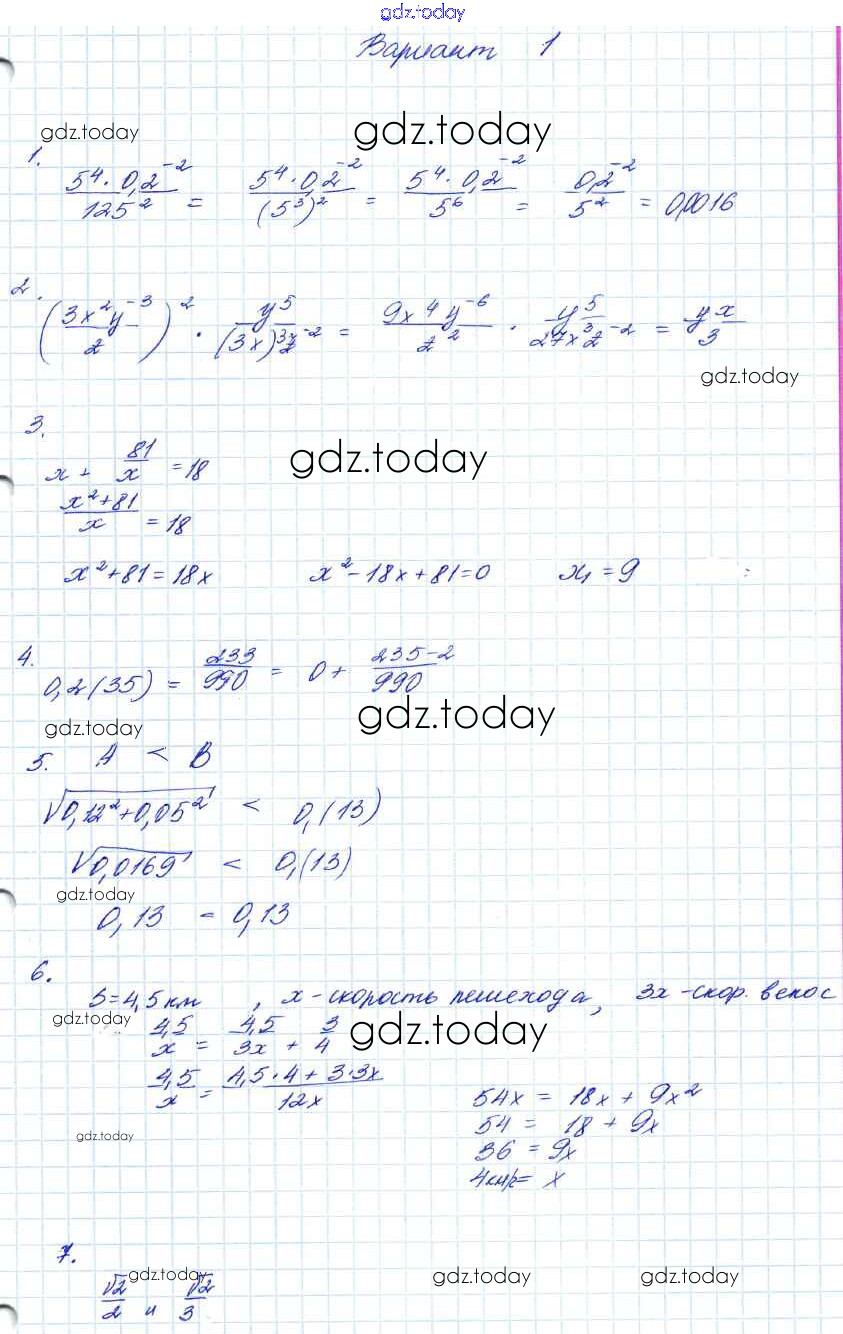 gdz.today
Вариант 1
gdz.today gdz.today
1.
5⁴·0,2⁻²/125² = 5⁴·0,2⁻²/(5³)² = 5⁴·0,2⁻²/5⁶ = 0,2⁻²/5² = 0,0016
2.
(3x²y⁻³/z)² · y⁵/(3x)³z⁻² = 9x⁴y⁻⁶/z² · y⁵/27x³z⁻² = yx/3
gdz.today
3.
x + 81/x = 18
gdz.today
x²+81/x = 18
x²+81=18x x²-18x+81=0 x₁=9
4.
0,2(35) = 233/990 = 0+ 235-2/990
gdz.today gdz.today
5. A < B
√0,12²+0,05² < 0,(13)
√0,0169 < 0,(13)
gdz.today
0,13 = 0,13
6.
S=4,5км, x-скорость пешехода, 3x-скор. велос
gdz.today
4,5/x = 4,5/3x + 3/4
gdz.today
4,5/x = 4,5·4+3·3x/12x
54x = 18x + 9x²
54 = 18 + 9x
gdz.today
36 = 9x
4км/ч= x
7.
gdz.today gdz.today gdz.today
√2/2 и √2/3